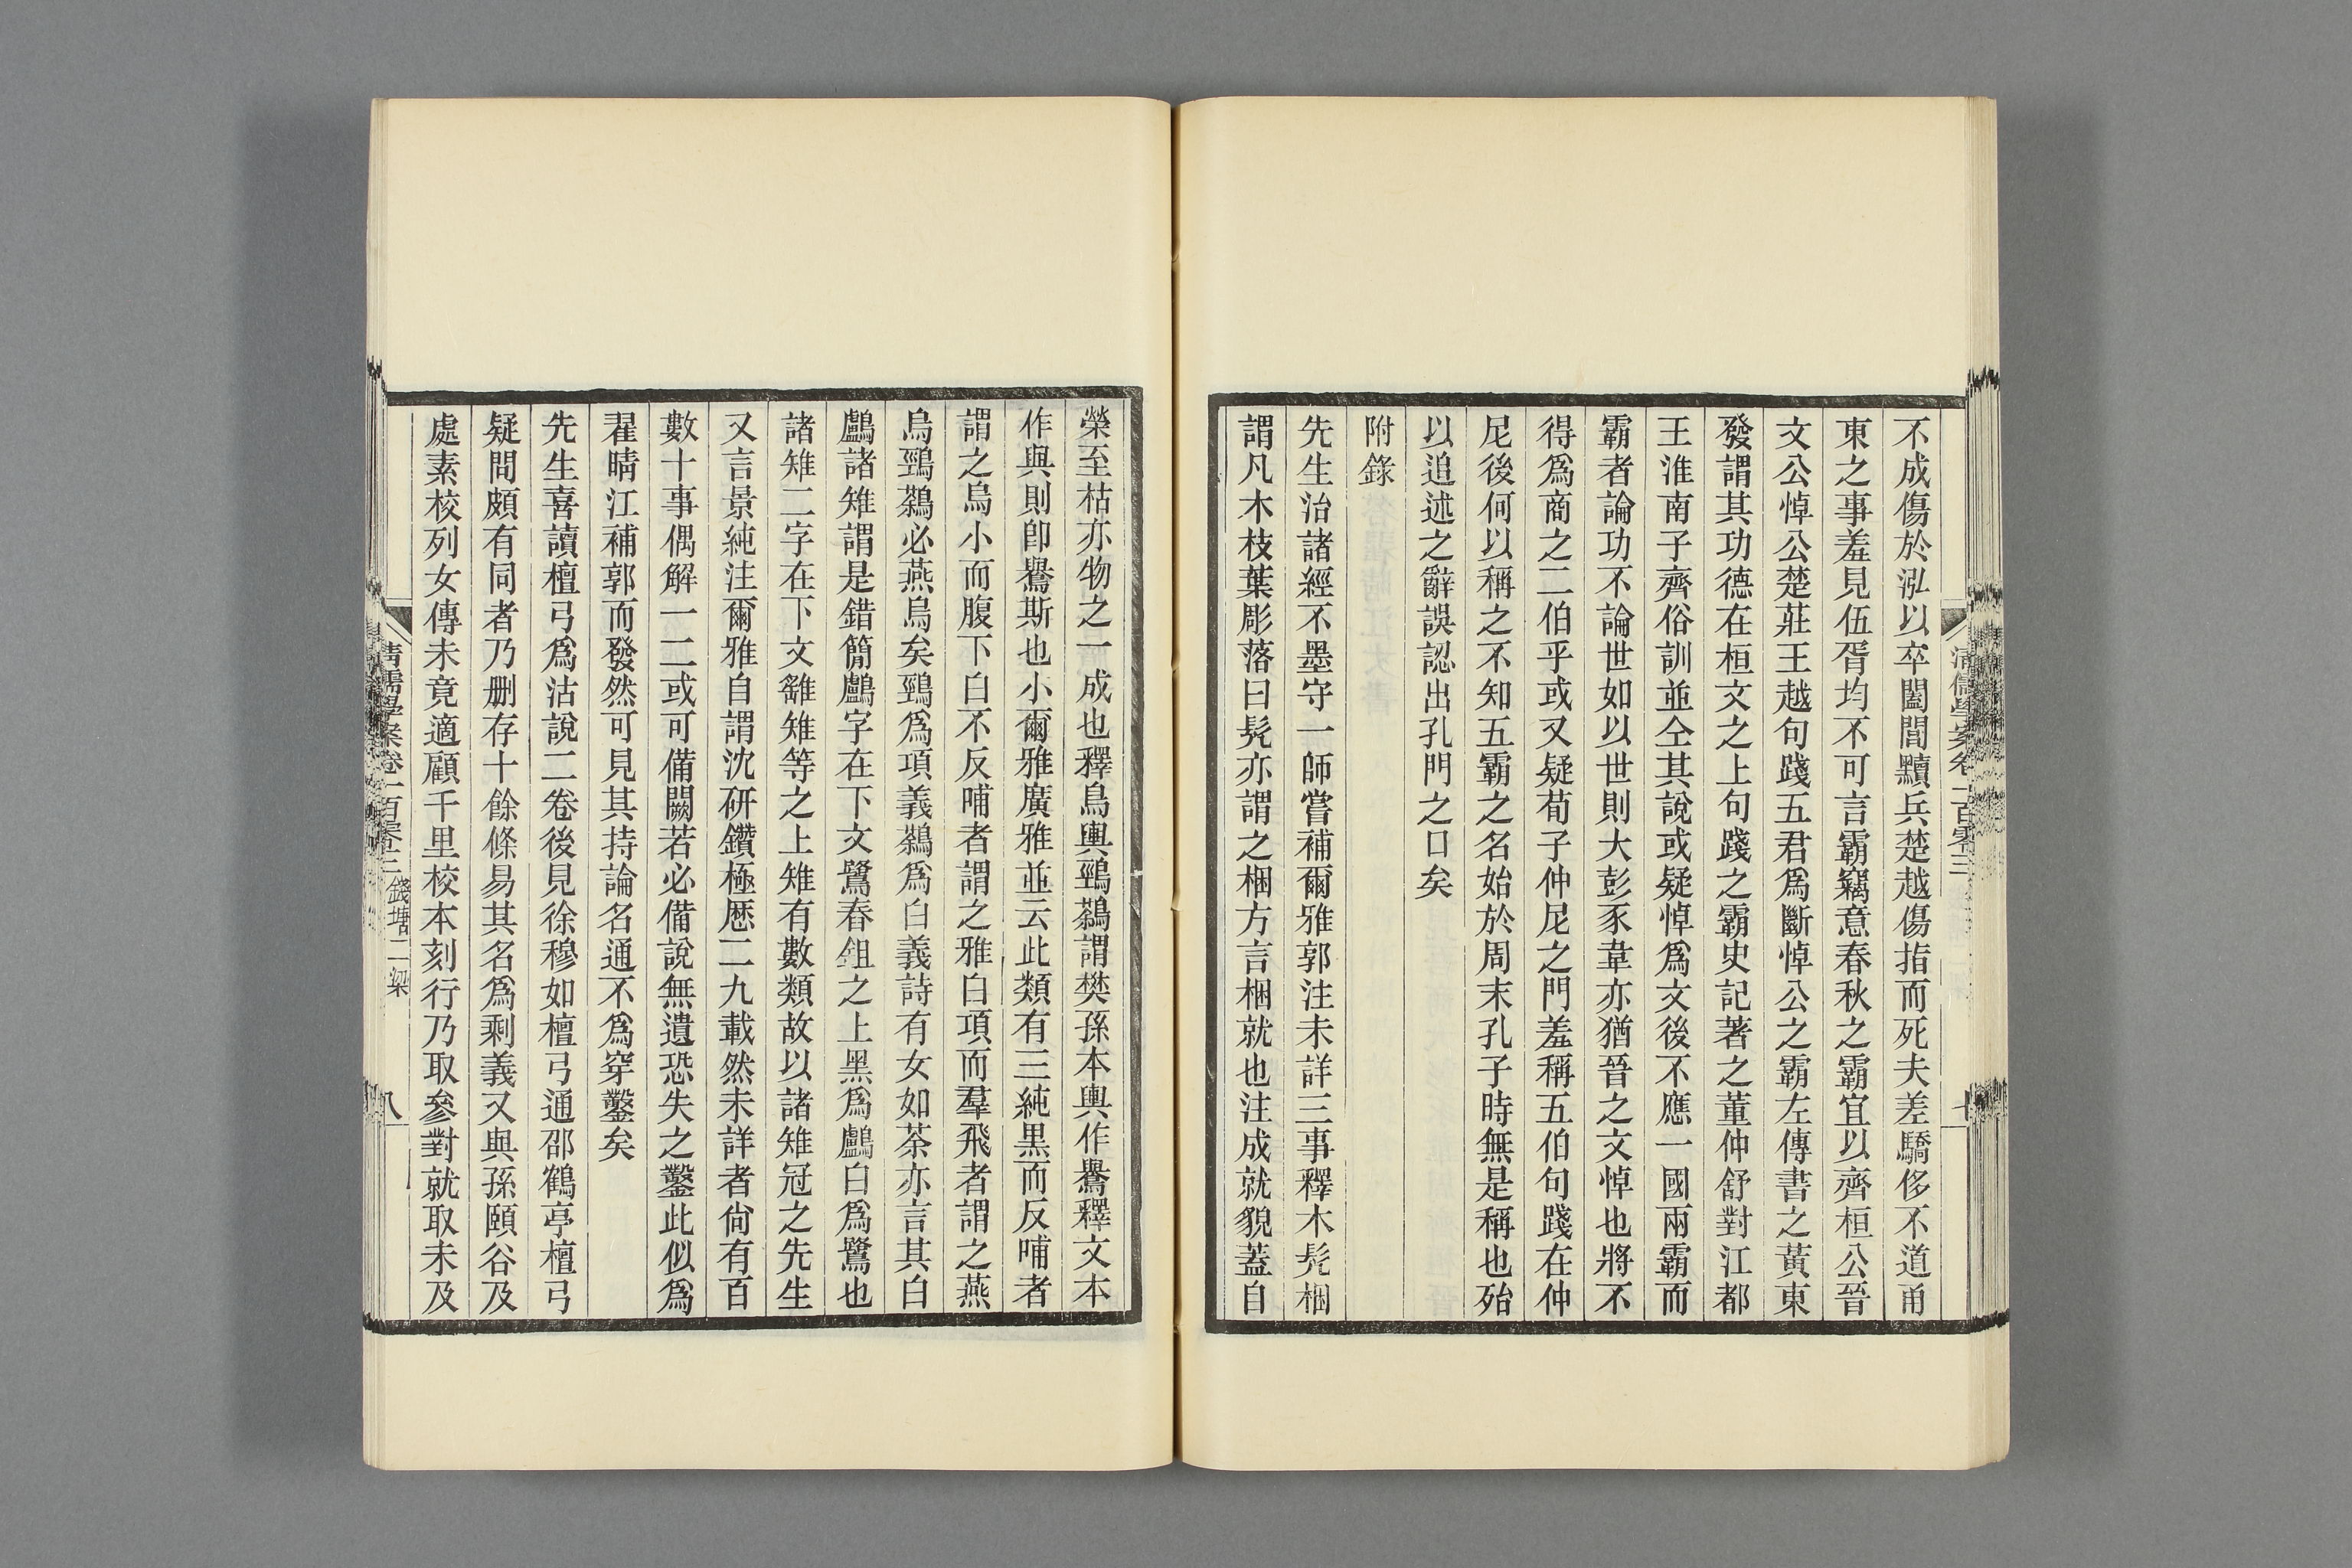 不成傷於泓以卒闔閭黷兵楚越傷指而死夫差驕侈不道甬
東之事羞見伍胥均不可言霸竊意春秋之霸宜以齊桓公晉
文公悼公楚莊王越句踐五君爲斷悼公之霸左傳書之黃東
發謂其功德在桓文之上句踐之霸史記著之董仲舒對江都
王淮南子齊俗訓並仝其說或疑悼爲文後不應一國兩霸而
霸者論功不論世如以世則大彭豕韋亦猶晉之文悼也將不
得爲商之二伯乎或又疑荀子仲尼之門羞稱五伯句踐在仲
尼後何以稱之不知五霸之名始於周末孔子時無是稱也殆
以追述之辭誤認出孔門之口矣
附錄
先生治諸經不墨守一師嘗補爾雅郭注未詳三事釋木髡梱
謂凡木枝葉彫落曰髡亦謂之梱方言梱就也注成就貌蓋自
清儒學案卷二百零三
七
榮至枯亦物之一成也釋鳥輿鵛鷋謂樊孫本輿作鸒釋文本
作與則卽鸒斯也小爾雅廣雅並云此類有三純黑而反哺者
謂之烏小而腹下白不反哺者謂之雅白項而羣飛者謂之燕
烏鵛鷋必燕烏矣鵛爲項義鷋爲白義詩有女如荼亦言其白
鸕諸雉謂是錯簡鸕字在下文鷺舂鉏之上黑爲鸕白爲鷺也
諸雉二字在下文雗雉等之上雉有數類故以諸雉冠之先生
又言景純注爾雅自謂沈研鑽極歷二九載然未詳者尙有百
數十事偶解一二或可備闕若必備說無遺恐失之鑿此似爲
翟晴江補郭而發然可見其持論名通不爲穿鑿矣
先生喜讀檀弓爲沽說二卷後見徐穆如檀弓通邵鶴亭檀弓
疑問頗有同者乃删存十餘條易其名爲剩義又與孫頤谷及
處素校列女傳未竟適顧千里校本刻行乃取參對就取未及
清儒學案卷二百零三 錢塘二梁
八